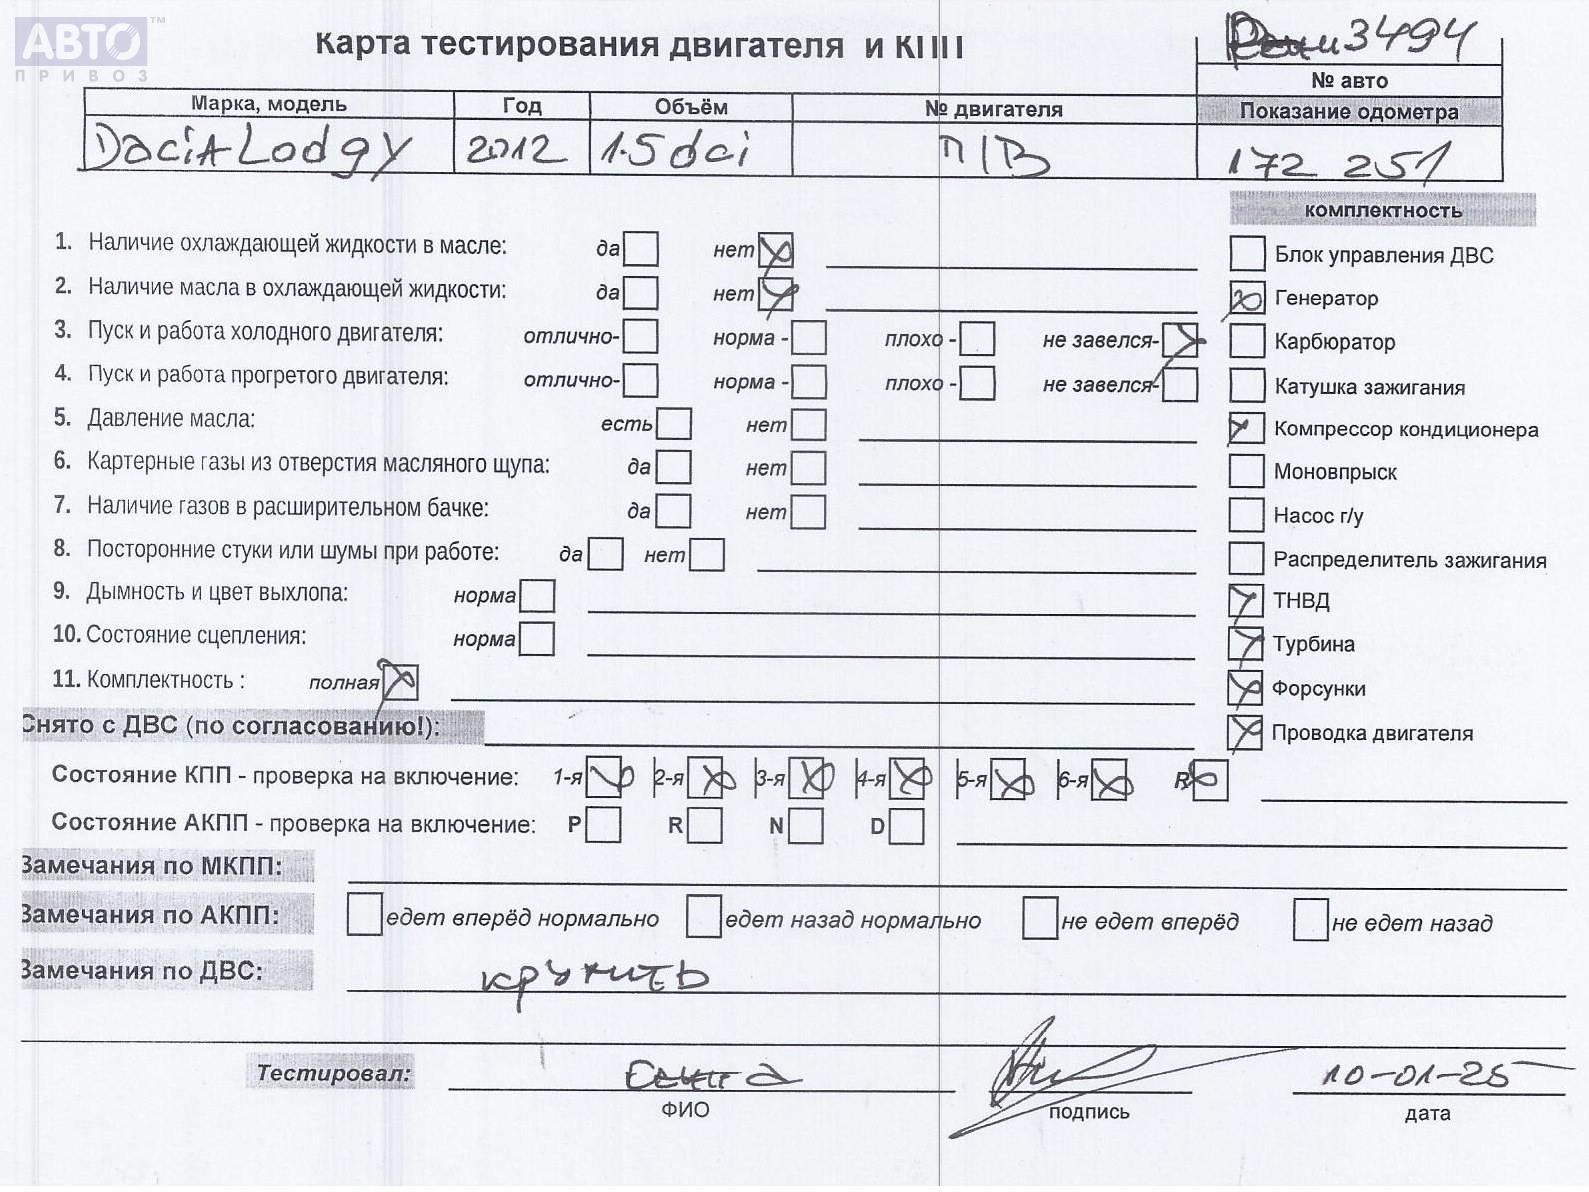 АВТО™
ПРИВОЗ
Карта тестирования двигателя и КПП
3494
№ авто
Марка, модель Год Объём № двигателя Показание одометра
Dacia Lodgy 2012 1.5 dci П/В 172 251
комплектность
1. Наличие охлаждающей жидкости в масле: да нет
Блок управления ДВС
2. Наличие масла в охлаждающей жидкости: да нет
Генератор
3. Пуск и работа холодного двигателя: отлично- норма - плохо - не завелся-
Карбюратор
4. Пуск и работа прогретого двигателя: отлично- норма - плохо - не завелся-
Катушка зажигания
5. Давление масла: есть нет
Компрессор кондиционера
6. Картерные газы из отверстия масляного щупа: да нет
Моновпрыск
7. Наличие газов в расширительном бачке: да нет
Насос г/у
8. Посторонние стуки или шумы при работе: да нет
Распределитель зажигания
9. Дымность и цвет выхлопа: норма
ТНВД
10. Состояние сцепления: норма
Турбина
11. Комплектность : полная
Форсунки
Снято с ДВС (по согласованию!):
Проводка двигателя
Состояние КПП - проверка на включение: 1-я 2-я 3-я 4-я 5-я 6-я R
Состояние АКПП - проверка на включение: P R N D
Замечания по МКПП:
Замечания по АКПП: едет вперёд нормально едет назад нормально не едет вперёд не едет назад
Замечания по ДВС:
Тестировал: 10-01-25
ФИО подпись дата